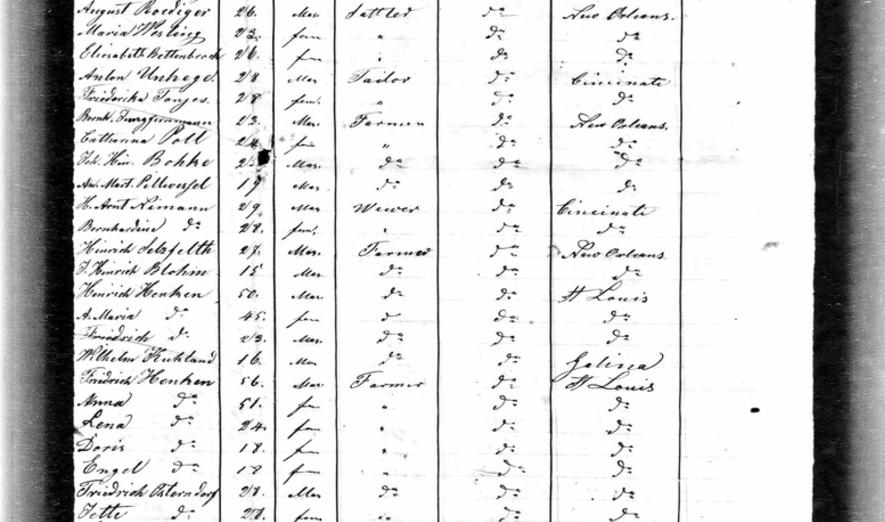 August Roediger 26. Mas Sattler do New Orleans.
Maria Wesling 23. fem " do do
Elisabeth Bettenbrock 26. fem " do do
Anton Unhege. 28 Mas Tailor do Cincinate
Friederike Tonjes. 28 fem. " do do
Bernh. Jungfermann 23. Mas. Farmer do New Orleans.
Catharina Poll 24. fem " do do
Joh. Hin. Bohke Mas. do do do
An. Mart. 19 Mas do do do
H. Arnt Neimann 29 Mas Wewer do Cincinate
Bernhardine do 28. fem. " do do
Hinrich Selzfelth 27. Mas. Farmer do New Orleans
J. Hinrich Blohm 15 Mas do do do
Henrich Henken 50. Mas do do St Louis
A. Maria do 45. fem do do do
Friedrich do 23. Mas. do do do
Wilhelm Kuhland 16. Mas do do Galina
Fridrich Henken 56. Mas Farmer do St Louis
Anna do 51. fem " do do
Lena do 24. fem " do do
Doris do 18. fem " do do
Engel do 18 fem " do do
Friedrich Osterndorf 28. Mas do do do
Jette do 28. fem " do do